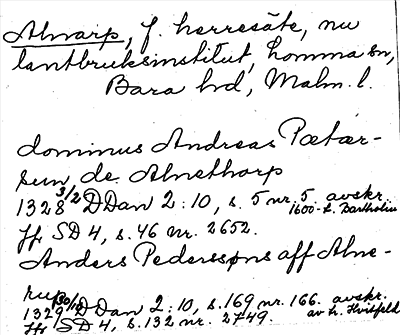 Alnarp, f. herresäte, nu
lantbruksinstitut, Lomma sn,
Bara hd, Malm. l.
dominus Andreas Pætær-
sun de Alnethorp
1328 3/2 DDan 2:10, s. 5 nr. 5 avskr.
1600-t. Bartholin
Jfr SD 4, s. 46 nr. 2652.
Anders Pederssøns aff Alne-
rup
1329 DDan 2:10, s. 169 nr. 166. avskr.
av A. Hvitfeld
Jfr SD 4, s. 132 nr. 2749.